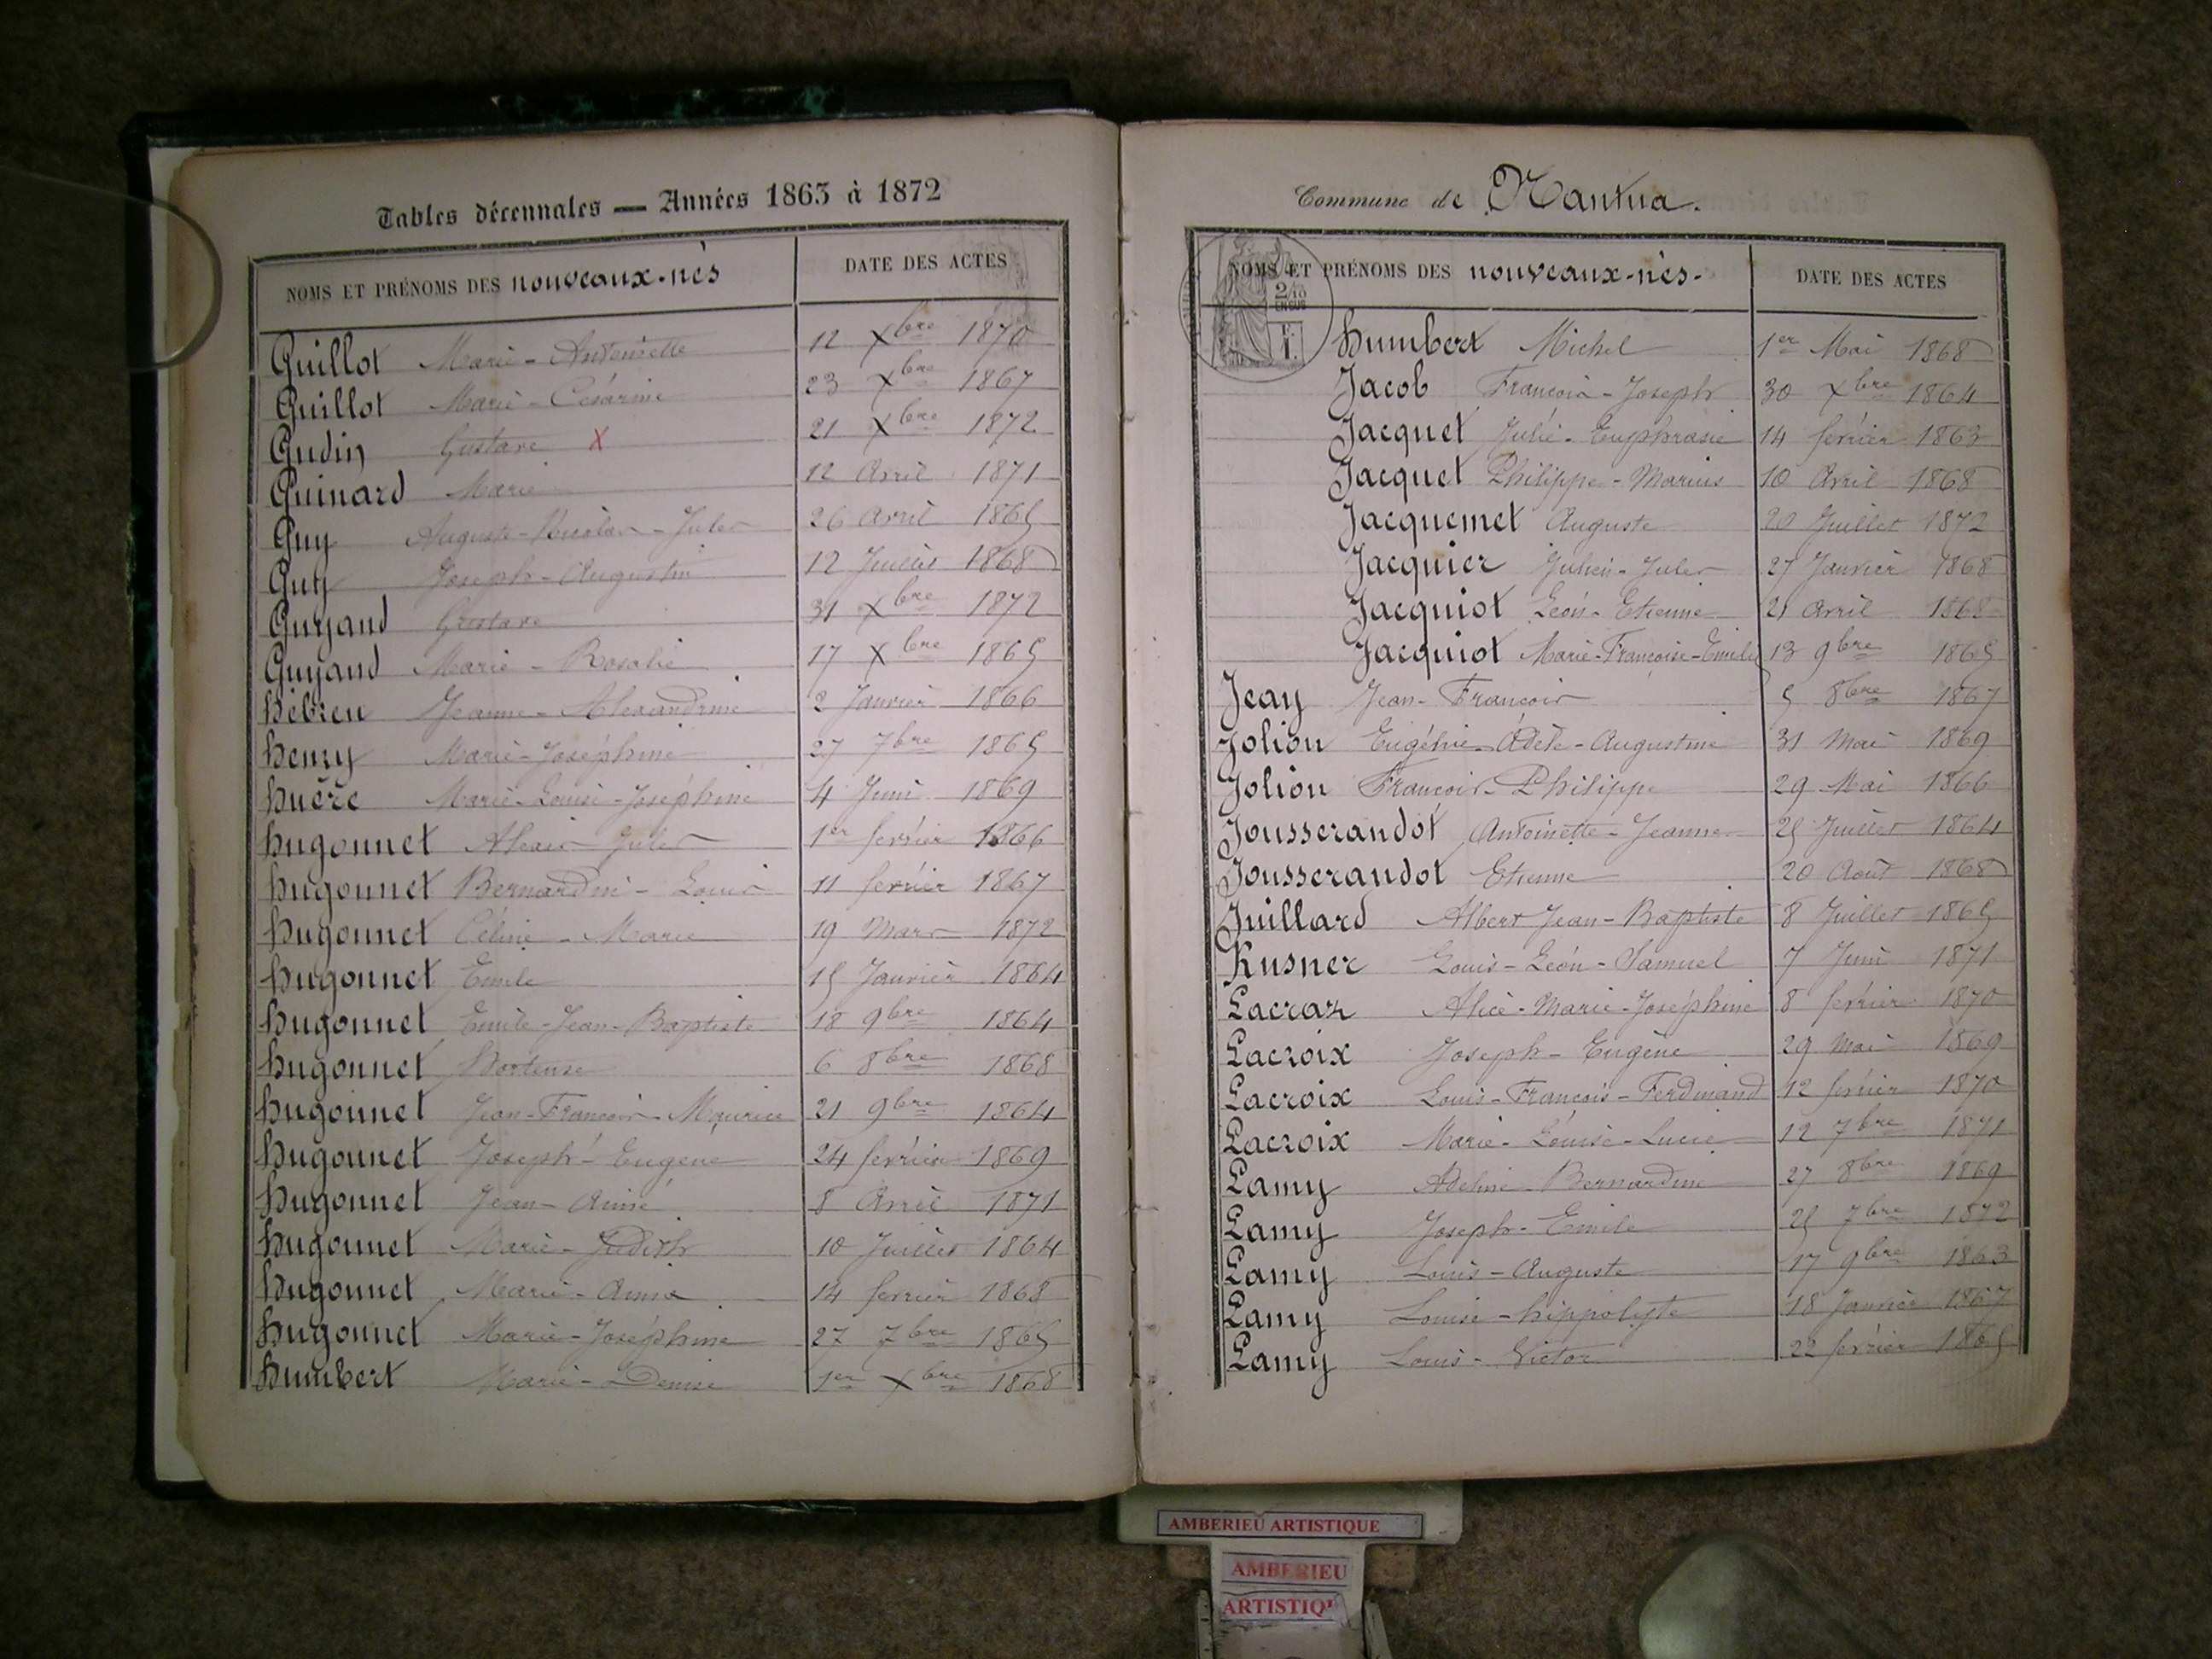 Tables décennales — Années 1863 à 1872
NOMS ET PRÉNOMS DES nouveaux-nés DATE DES ACTES
Guillot Marie-Antoinette 12 Xbre 1870
Guillot Marie-Césarine 23 Xbre 1867
Gudin Gustave X 21 Xbre 1872
Guinard Marie 12 Avril 1871
Guy Auguste-Nicolas-Jules 26 Avril 1865
Guy Joseph-Augustin 12 Juillet 1868
Guyand Gustave 31 Xbre 1872
Guyand Marie-Rosalie 17 Xbre 1865
Hébreu Jeanne-Alexandrine 2 Janvier 1866
Henry Marie-Joséphine 27 7bre 1865
Huère Marie-Louise-Joséphine 4 Juin 1869
Hugonnet Alexis-Jules 1er février 1866
Hugonnet Bernardin-Louis 11 février 1867
Hugonnet Céline-Marie 19 Mars 1872
Hugonnet Emile 15 Janvier 1864
Hugonnet Emile-Jean-Baptiste 18 9bre 1864
Hugonnet Hortense 6 8bre 1868
Hugonnet Jean-François-Maurice 21 9bre 1864
Hugonnet Joseph-Eugène 24 février 1869
Hugonnet Jean-Aimé 8 Avril 1871
Hugonnet Marie-Judith 10 Juillet 1864
Hugonnet Marie 14 février 1868
Hugonnet Marie-Joséphine 27 7bre 1865
Humbert Marie-Denise 1er Xbre 1868
Commune de Nantua.
NOMS ET PRÉNOMS DES nouveaux-nés- DATE DES ACTES
2/10
EN SUS
Humbert Michel 1er Mai 1868
Jacob François-Joseph 30 Xbre 1864
Jacquet Julie-Euphrasie 14 février 1863
Jacquet Philippe-Marius 10 Avril 1868
Jacquemet Auguste 20 Juillet 1872
Jacquier Julien-Jules 27 Janvier 1868
Jacquiot Léon-Etienne 21 Avril 1868
Jacquiot Marie-Françoise-Emilie 13 9bre 1865
Jeay Jean-François 5 8bre 1867
Jolion Eugénie-Adèle-Augustine 31 Mai 1869
Jolion François-Philippe 29 Mai 1866
Jousserandot Antoinette-Jeanne 25 Juillet 1864
Jousserandot Etienne 20 Août 1868
Juillard Albert Jean-Baptiste 8 Juillet 1865
Kusner Louis-Léon-Samuel 7 Juin 1871
Lacraz Alice-Marie-Joséphine 8 février 1870
Lacroix Joseph-Eugène 29 Mai 1869
Lacroix Louis-François-Ferdinand 12 février 1870
Lacroix Marie-Louise-Lucie 12 7bre 1871
Lamy Adeline-Bernardine 27 8bre 1869
Lamy Joseph-Emile 25 7bre 1872
Lamy Louis-Auguste 17 9bre 1863
Lamy Louise-hippolyte 18 Janvier 1867
Lamy Louis-Victor 22 février 1865
AMBERIEU ARTISTIQUE
AMBERIEU
ARTISTIQU